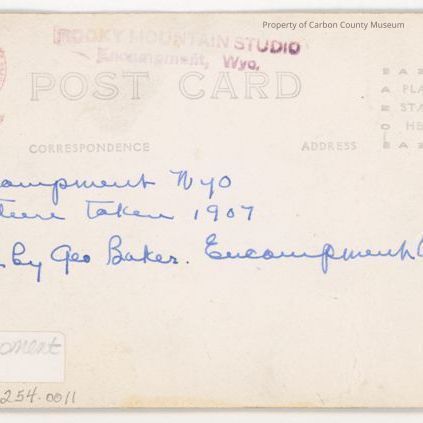 Property of Carbon County Museum
ROCKY MOUNTAIN STUDIO
Encampment, Wyo.
POST CARD
CORRESPONDENCE
ADDRESS
A PLA
STA
HE
campment Wyo
ture taken 1907
by Geo Baker. Encampment
pment
254.0011